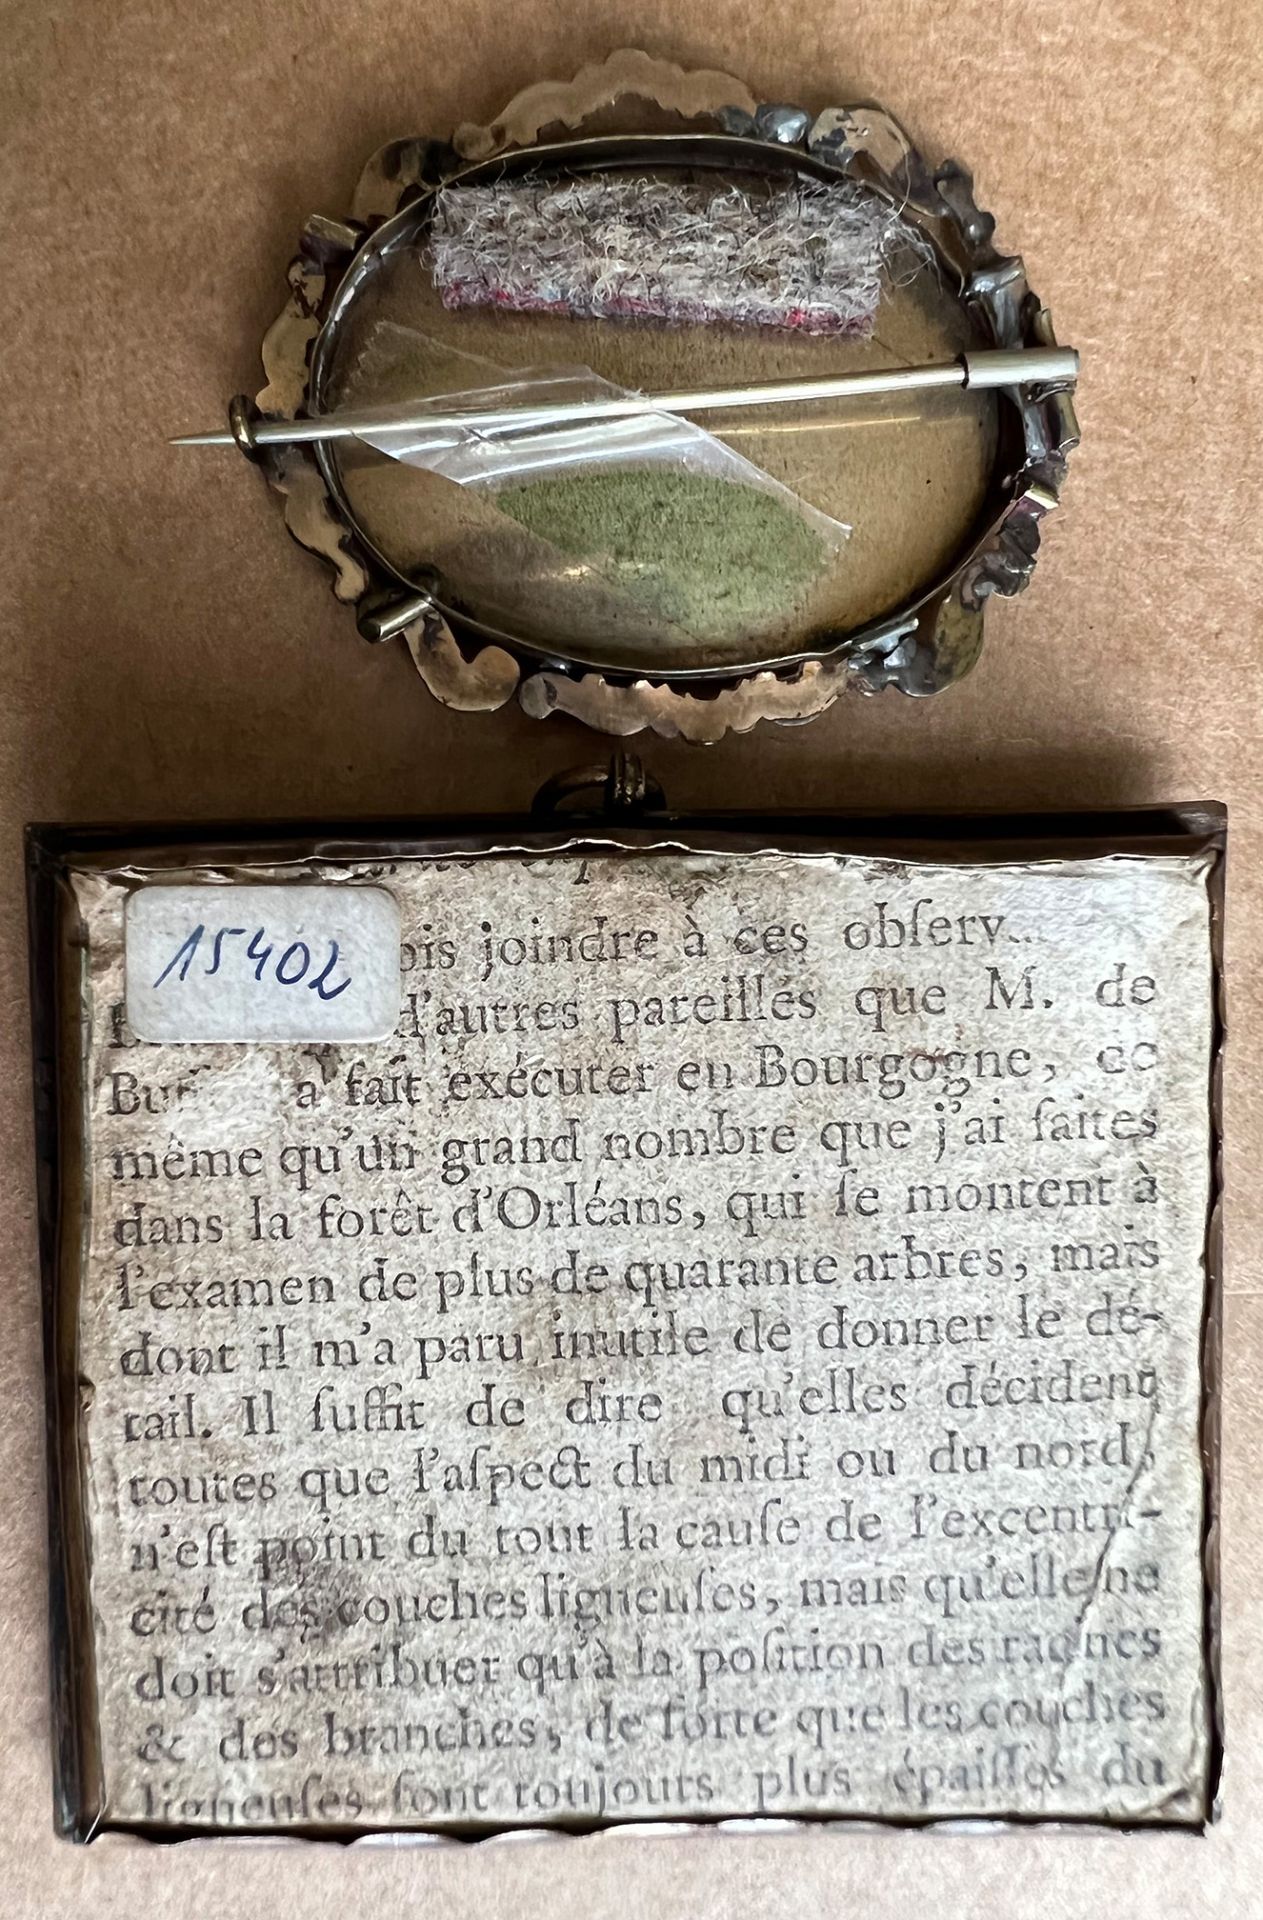 15402
joindre à ces obſerv
d'autres pareilles que M. de
a fait exécuter en Bourgogne, de
même qu'un grand nombre que j'ai faites
dans la forêt d'Orléans, qui ſe montent à
l'examen de plus de quarante arbres, mais
dont il m'a paru inutile de donner le dé-
tail. Il ſuffit de dire qu'elles décident
toutes que l'aſpect du midi ou du nord,
n'eſt point du tout la cauſe de l'excentri-
cité des couches ligneuſes, mais qu'elle ne
doit s'attribuer qu'à la poſition des racines
& des branches, de ſorte que les couches
ligneuſes ſont toujours plus épaiſſes du